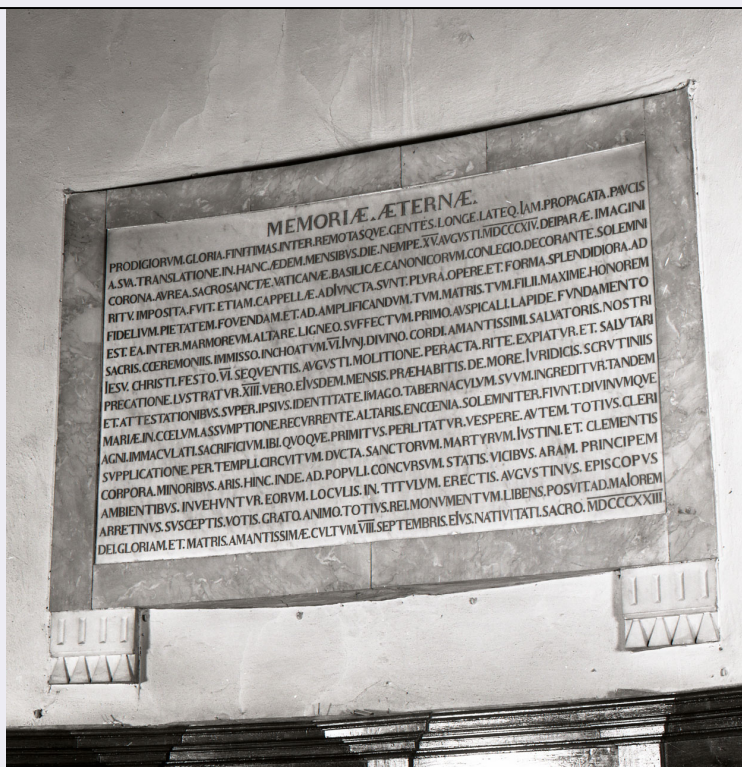 MEMORIÆ.ÆTERNÆ.
PRODIGIORVM.GLORIA.FINITIMAS.INTER.REMOTASQVE.GENTES.LONGE.LATEQ.IAM.PROPAGATA.PAVCIS
A.SVA.TRANSLATIONE.IN.HANC.ÆDEM.MENSIBVS.DIE.NEMPE.XV.AVGVSTI.MDCCCXIV.DEIPARÆ.IMAGINI
CORONA.AVREA.SACROSANCTÆ.VATICANÆ.BASILICÆ.CANONICORVM.CONLEGIO.DECORANTE.SOLEMNI
RITV.IMPOSITA.FVIT.ETIAM.CAPPELLÆ.ADIVNCTA.SVNT.PLVRA.OPERE.ET.FORMA.SPLENDIDIORA.AD
FIDELIVM.PIETATEM.FOVENDAM.ET.AD.AMPLIFICANDVM.TVM.MATRIS.TVM.FILII.MAXIME.HONOREM
EST.EA.INTER.MARMOREVM.ALTARE.LIGNEO.SVFFECTVM.PRIMO.AVSPICALI.LAPIDE.FVNDAMENTO
SACRIS.CŒREMONIIS.IMMISSO.INCHOATVM.VI.IVNJ.DIVINO.CORDI.AMANTISSIMI.SALVATORIS.NOSTRI
IESV.CHRISTI.FESTO.VI.SEQVENTIS.AVGVSTI.MOLITIONE.PERACTA.RITE.EXPIATVR.ET.SALVTARI
PRECATIONE.LVSTRATVR.XIIII.VERO.EIVSDEM.MENSIS.PRÆHABITIS.DE.MORE.IVRIDICIS.SCRVTINIIS
ET.ATTESTATIONIBVS.SVPER.IPSIVS.IDENTITATE.IMAGO.TABERNACVLVM.SVVM.INGREDITVR.TANDEM
MARIÆ.IN.CŒLVM.ASSVMPTIONE.RECVRRENTE.ALTARIS.ENCŒNIA.SOLEMNITER.FIVNT.DIVINVMQVE
AGNI.IMMACVLATI.SACRIFICIVM.IBI.QVOQVE.PRIMITVS.PERLITATVR.VESPERE.AVTEM.TOTIVS.CLERI
SVPPLICATIONE.PER.TEMPLI.CIRCVITVM.DVCTA.SANCTORVM.MARTYRVM.IVSTINI.ET.CLEMENTIS
CORPORA.MINORIBVS.ARIS.HINC.INDE.AD.POPVLI.CONCVRSVM.STATIS.VICIBVS.ARAM.PRINCIPEM
AMBIENTIBVS.INVEHVNTVR.EORVM.LOCVLIS.IN.TITVLVM.ERECTIS.AVGVSTINVS.EPISCOPVS
ARRETINVS.SVSCEPTIS.VOTIS.GRATO.ANIMO.TOTIVS.REI.MONVMENTVM.LIBENS.POSVIT.AD.MAIOREM
DEI.GLORIAM.ET.MATRIS.AMANTISSIMÆ.CVLTVM.VIII.SEPTEMBRIS.EIVS.NATIVITATI.SACRO.MDCCCXXIII